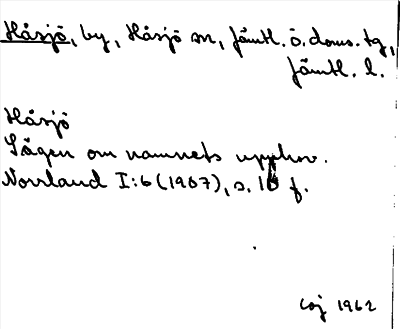 Håsjö, by, Håsjö sn, Jämtl. ö. doms. tg,
Jämtl. l.
Håsjö
Sägen om namnets upphov.
Norrland I:6 (1907), s. 16 f.
1962